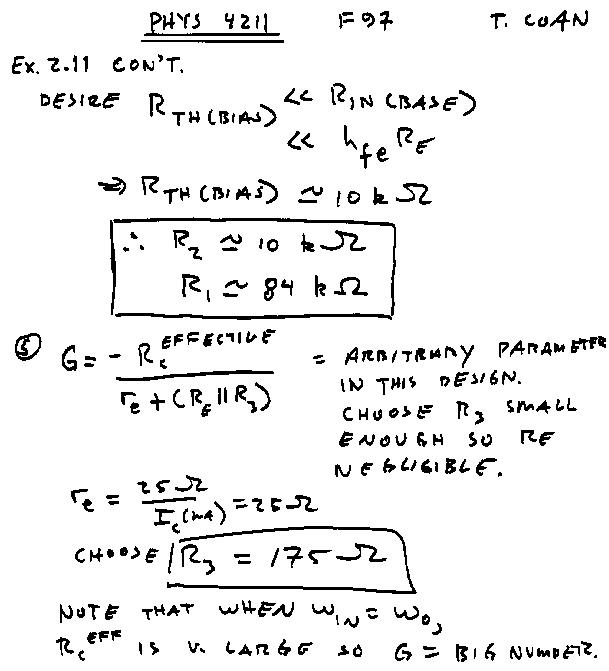 PHYS 4211 F97 T. COAN
Ex. 2.11 CON'T.
DESIRE R_TH(BIAS) << R_IN(BASE)
<< h_fe R_E
⇒ R_TH(BIAS) ≃ 10 kΩ
∴ R_2 ≃ 10 kΩ
R_1 ≃ 84 kΩ
⑤ G = - R_c^EFFECTIVE / (r_e + (R_E || R_3)) = ARBITRARY PARAMETER
IN THIS DESIGN.
CHOOSE R_3 SMALL
ENOUGH SO RE
NEGLIGIBLE.
r_e = 25Ω / I_c(mA) = 25Ω
CHOOSE R_3 = 175 Ω
NOTE THAT WHEN ω_IN = ω_0,
R_c^EFF IS V. LARGE SO G = BIG NUMBER.